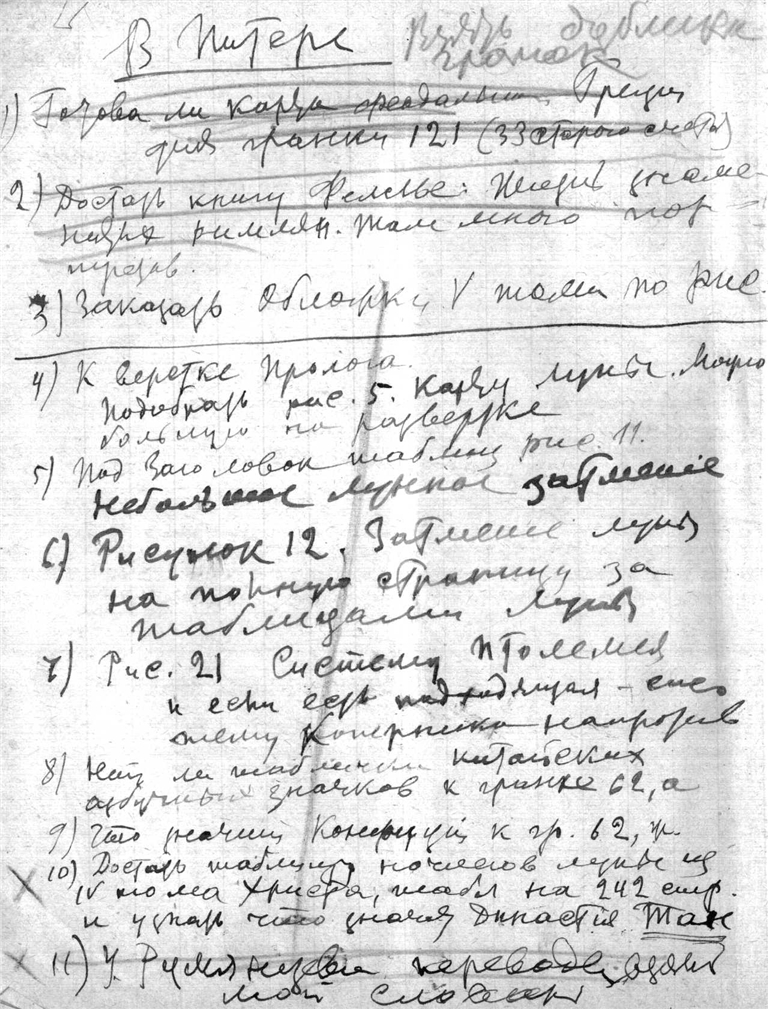 В Питере
Взять дубликат
гранок
1) Готова ли карта феодальной Греции
для гранки 121 (33 старого счета)
2) Достать книгу Фелье: Жизнь знаме-
нитых римлян. Там много пор-
третов.
3) Заказать обложку V тома по рис.
4) К верстке Пролога.
Подобрать рис. 5. Карту луны. Можно
большую на развертке
5) Под Заголовок таблиц рис. 11.
небольшое лунное затмение
6) Рисунок 12. Затмение луны
на полную страницу за
таблицами луны
7) Рис. 21 Систему Птолемея
и если есть подходящая – сис
тему Коперника напротив
8) Нет ли таблички китайских
азбучных значков к гранке 62, а
9) Что значит Конфуций к гр. 62, ж.
10) Достать таблицу луны из
IV тома Христа, табл на 242 стр.
и узнать что значит Династия Тан
11) У Румянцевой перевод взять
мой